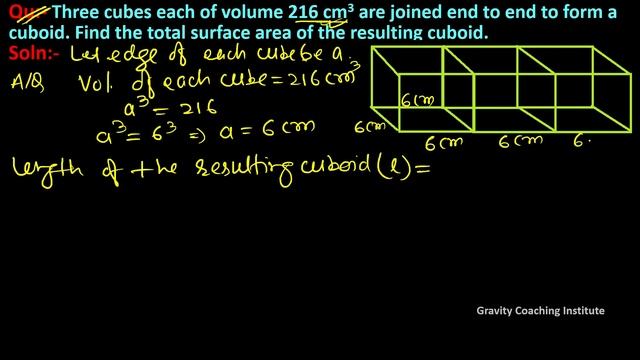 Qu:- Three cubes each of volume 216 cm³ are joined end to end to form a
cuboid. Find the total surface area of the resulting cuboid.
Soln:- Let edge of each cube be a.
A/Q Vol. of each cube = 216 cm³
a³ = 216
a³ = 6³ ⇒ a = 6 cm
6 cm
6 cm
6 cm 6 cm 6.
Length of the resulting cuboid (l) =
Gravity Coaching Institute